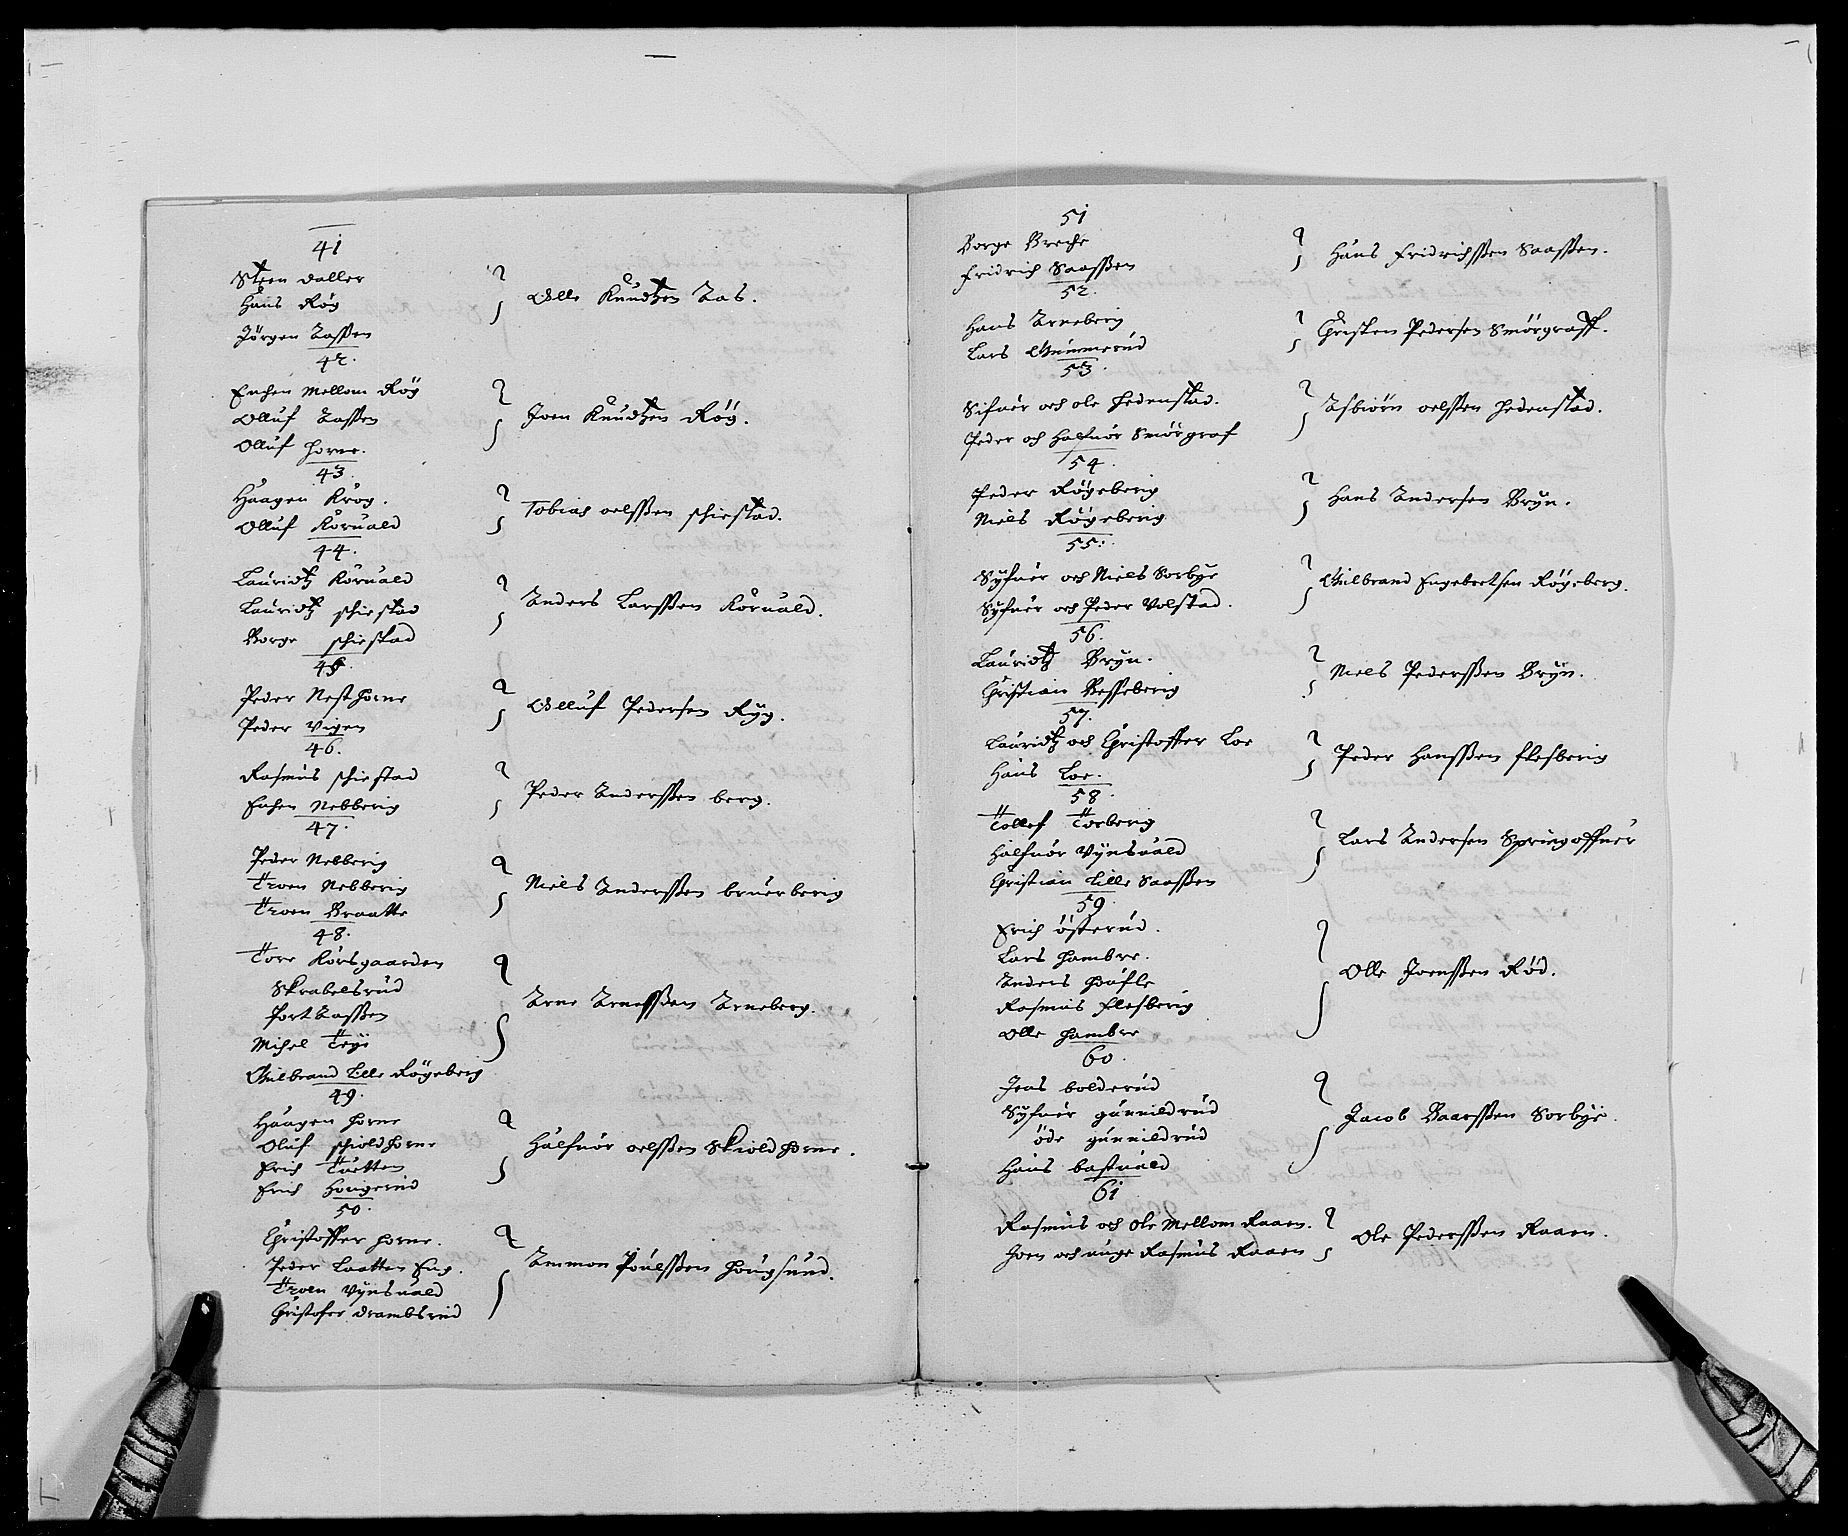 41
Steen daller
Hans Røg
Jørgen Aassen
Olle Knudtzen Aas.
42.
Enchen Mellom Røg
Olluf Aassen
Olluf Horne.
Joen Knudtzen Røg.
43.
Haagen Krog.
Olluf Korvald
Tobias oelssen schiestad.
44.
Lauridtz Korvald
Lauridtz schiestad
Borge schiestad
Anders Larssen Korvald.
45.
Peder Nesthorne
Peder Vigen
Olluf Pedersen Ryg.
46.
Rasmus schiestad
Enchen Nebberig
Peder Anderssen berg.
47.
Peder Nebberig
Troen Nebberig
Troen Braatte
Niels Anderssen bruerberig
48.
Tore Korsgaarden
Skrabelsrud
Hort Aassen
Michel Teye
Gulbrand Lille Røgeberg
Arne Arnessen Arneberg.
49.
Haagen Horne
Oluf schioldhorne
Erich Tuetten
Erich Hougerud
Halfuor oelssen Skioldhorne.
50.
Christoffer Horne.
Peder Laatten Eng.
Troen Vynsuald
Christofer drambsrud
Ammon Poulssen Hougsund.
51
Borge Breche
Fridrich Saassen
Hans Fridrichssen Saassen.
52.
Hans Arneberg
Lars Gummerud
Christen Pedersen Smørgraff.
53.
Sifuer och ole Hedenstad.
Peder och Halfuor Smørgraf
Asbiørn oelssen Hedenstad.
54.
Peder Røgeberig
Niels Røgeberig
Hans Andersen Bryn.
55:
Syfuer och Niels Sorbye
Syfuer och Peder Volstad.
Gulbrand Engebretsen Røgeberg.
56.
Lauridtz Bryn.
Christian Besseberig
Niels Pederssen Bryn.
57.
Lauridtz och Christoffer Loe
Hans Loe.
Peder Hanssen flesberig
58
Tollef Torberig
Halfuor Vynsuald
Christian Lille Saassen
Lars Andersen Springoffuer
59
Erich østerud.
Lars Hambre.
Anders Houfle
Rasmus Flesberig
Olle Hambre
Olle Joenssen Rød.
60.
Jens bolderud
Syfuer gunnildrud
øde gunnildrud
Hans bastuald
Jacob Baarssen Sorbye.
61
Rasmus och Ole Mellom Raaen.
Joen och unge Rasmus Raaen
Ole Pederssen Raaen.